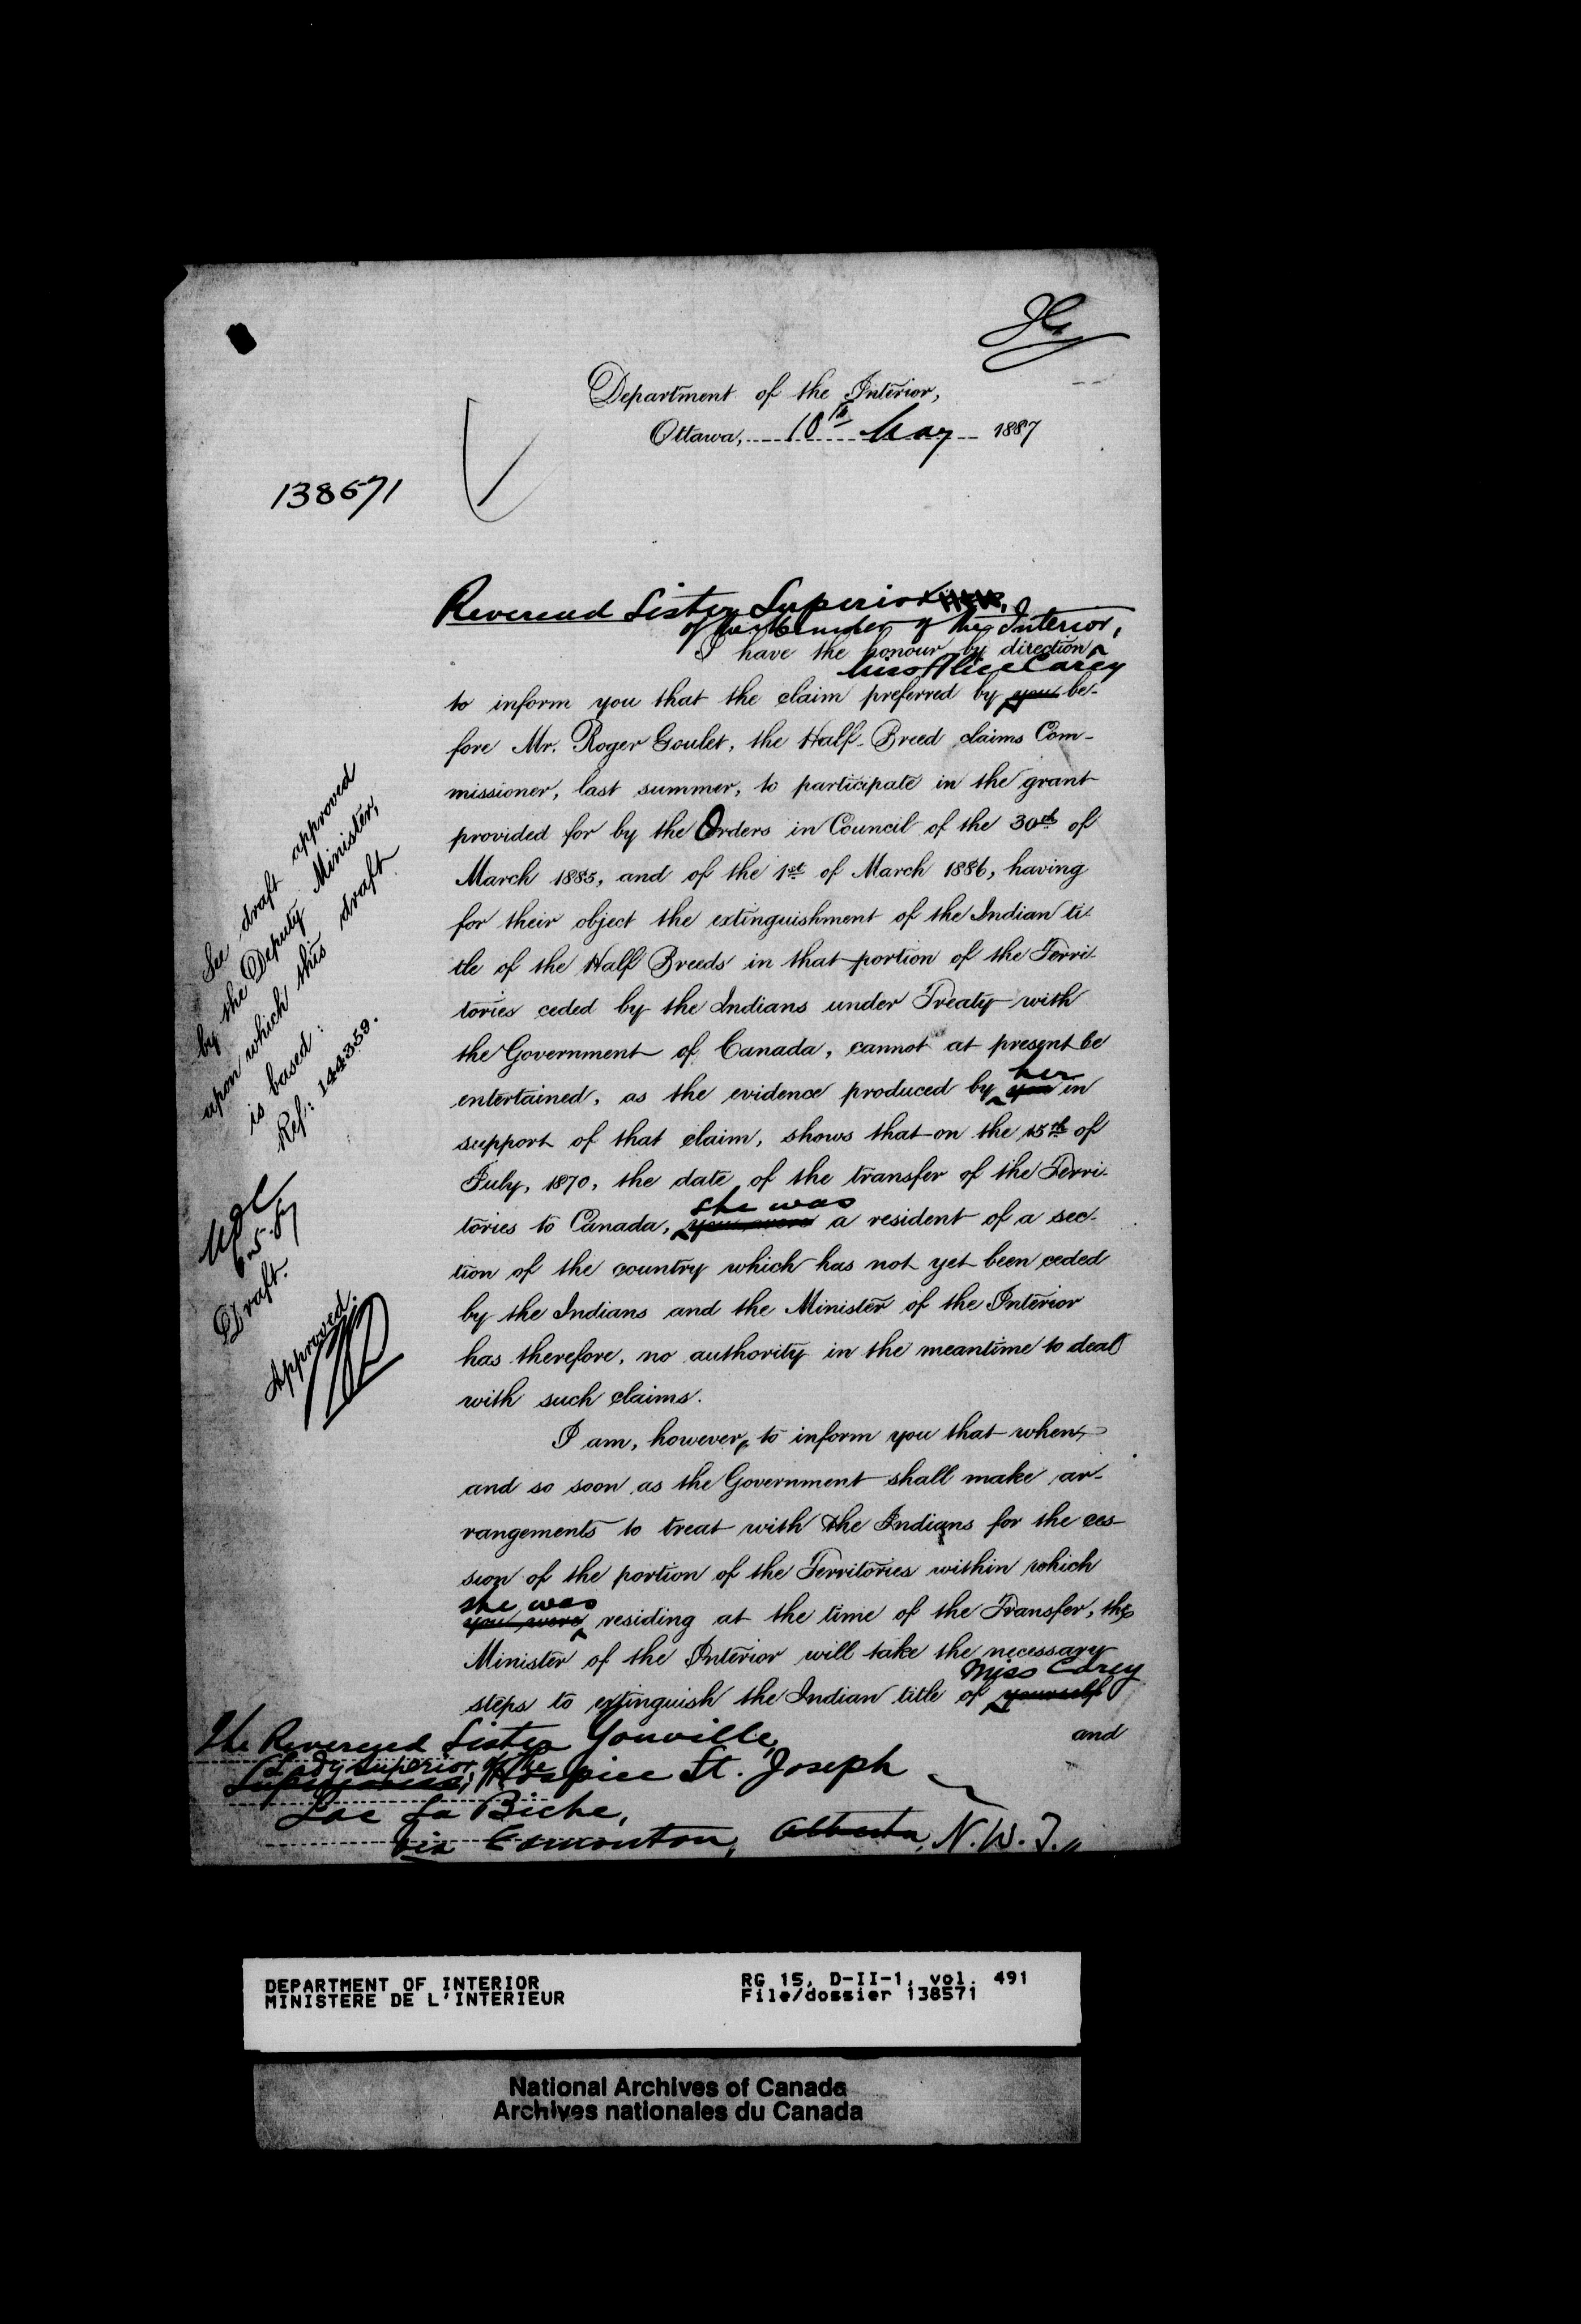 Department of the Interior,
Ottawa, 10th May 1887
138571
Reverend Sister Superior,
of the Minister of the Interior,
I have the honour by direction
Miss Alice Carey
to inform you that the claim preferred by you be-
fore Mr. Roger Goulet, the Half-Breed claims Com-
missioner, last summer, to participate in the grant
provided for by the Orders in Council of the 30th of
March 1885, and of the 1st of March 1886, having
for their object the extinguishment of the Indian ti-
tle of the Half Breeds in that portion of the Terri-
tories ceded by the Indians under Treaty with
the Government of Canada, cannot at present be
her
entertained, as the evidence produced by you in
support of that claim, shows that on the 15th of
July, 1870, the date of the transfer of the Terri-
she was
tories to Canada, you were a resident of a sec-
tion of the country which has not yet been ceded
by the Indians and the Minister of the Interior
has therefore, no authority in the meantime to deal
with such claims.
I am, however, to inform you that when,
and so soon as the Government shall make ar-
rangements to treat with the Indians for the ces-
sion of the portion of the Territories within which
she was
you were residing at the time of the Transfer, the
Minister of the Interior will take the necessary
Miss Carey
steps to extinguish the Indian title of yourself
and
See draft approved
by the Deputy Minister,
upon which this draft
is based:
Ref: 144359.
6.5.87
Draft.
Approved.
The Reverend Sister Youville,
Lady Superior of the
Hospice St. Joseph
Lac La Biche,
via Edmonton, Alberta, N.W.T.
DEPARTMENT OF INTERIOR
MINISTERE DE L'INTERIEUR
RG 15, D-II-1, vol. 491
File/dossier 138571
National Archives of Canada
Archives nationales du Canada